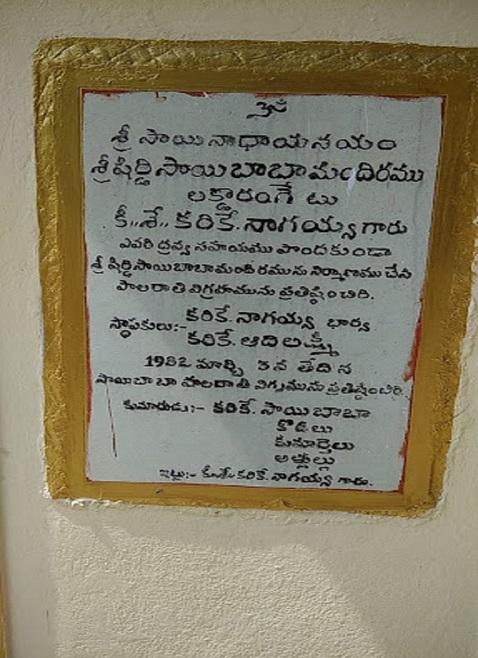 ఓం
శ్రీ సాయి నాధాయనయం
శ్రీ షిర్డి సాయి బాబా మందిరము
లక్డారంగే టు
కీ..శే.. కరికే. నాగయ్య గారు
ఎవరి ద్రవ్య సహాయము పొందకుండా
శ్రీ షిర్డి సాయి బాబా మందిరమును నిర్మాణము చేసి
పాలరాతి విగ్రహమును ప్రతిష్ఠించిరి.
స్థాపకులు:- కరికే. నాగయ్య భార్య
కరికే. ఆది లక్ష్మీ
1982 మార్చి 3 న తేదిన
సాయిబాబా పాలరాతి విగ్రమును ప్రతిష్ఠించిరి.
కుమారుడు:- కరికే. సాయి బాబా
కొడలు
కుమార్తెలు
అల్లుల్లు
ఇట్లు:- కీ.శే. కరికే. నాగయ్య గారు.